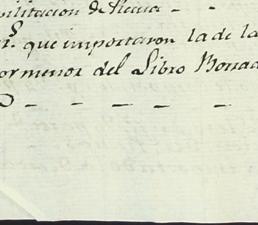 bilitacion de Recua - -
rs. que importaron la de la
pormenor del Libro Borrad
- - - - -